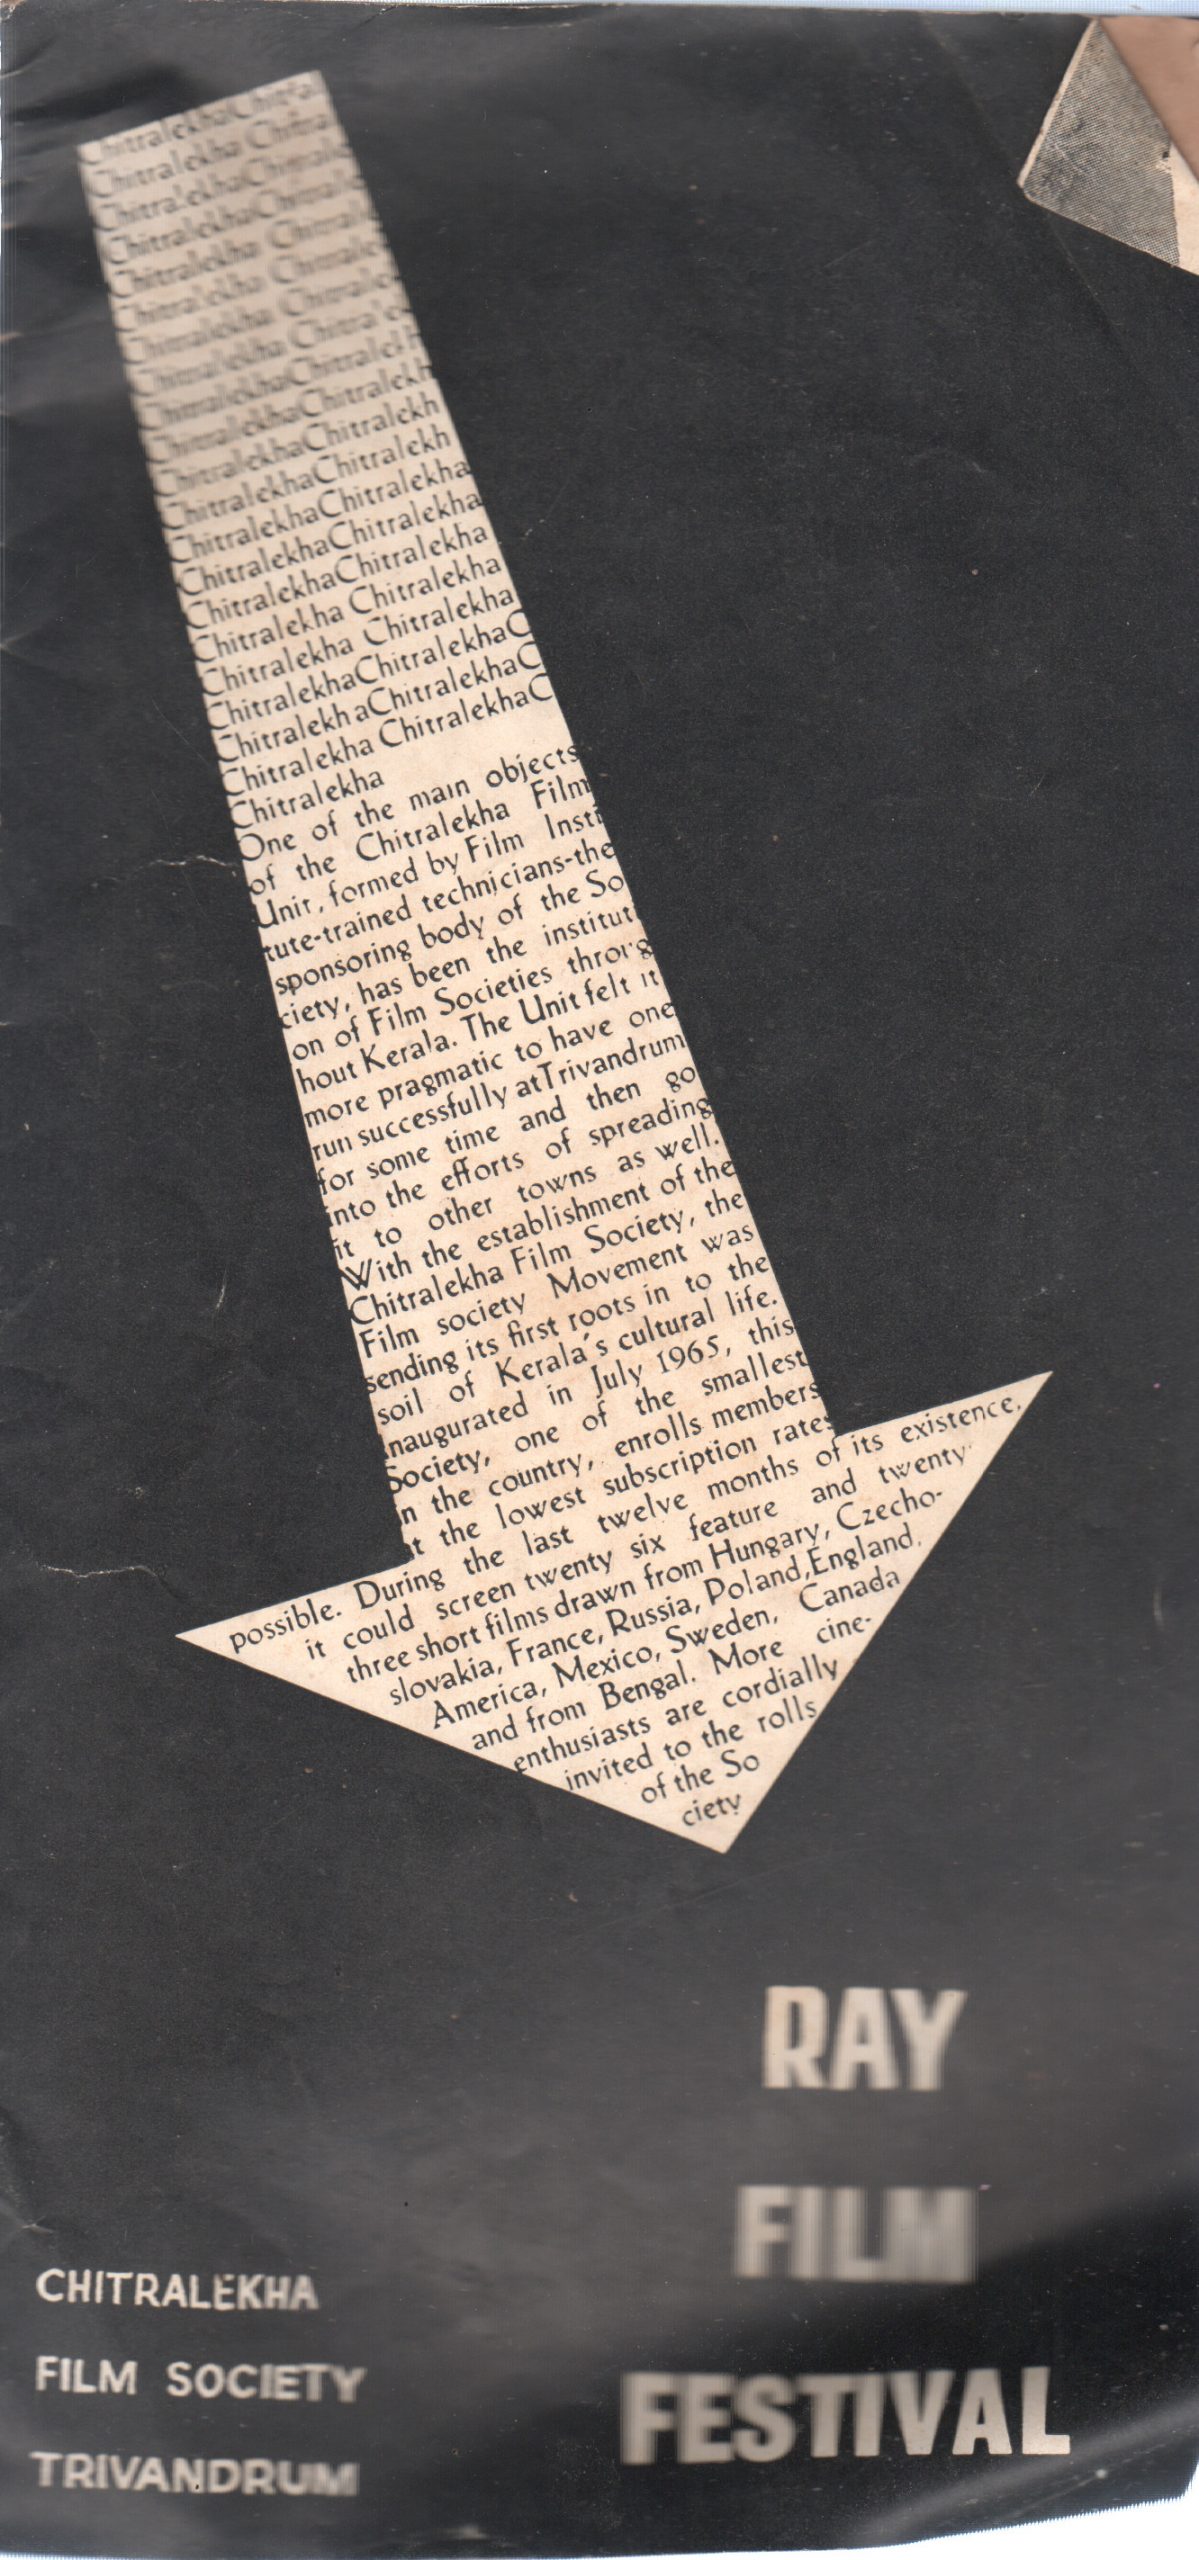 ChitralekhaChitral
Chitralekha Chitral
ChitralekhaChitrale
ChitralekhaChitrale
Chitralekha Chitrale
Chitralekha Chitrale
Chitralekha Chitrale
Chitralekha Chitrale
ChitralekhaChitralekh
ChitralekhaChitralekh
ChitralekhaChitralekh
ChitralekhaChitralekh
ChitralekhaChitralekha
ChitralekhaChitralekha
ChitralekhaChitralekha
Chitralekha Chitralekha
Chitralekha Chitralekha
ChitralekhaChitralekhaC
ChitralekhaChitralekhaC
Chitralekha ChitralekhaC
Chitralekha
One of the main objects
of the Chitralekha Film
Unit, formed by Film Insti
tute-trained technicians-the
sponsoring body of the So
ciety, has been the instituti
on of Film Societies throug
hout Kerala. The Unit felt it
more pragmatic to have one
run successfully atTrivandrum
for some time and then go
into the efforts of spreading
it to other towns as well.
With the establishment of the
Chitralekha Film Society, the
Film society Movement was
sending its first roots in to the
soil of Kerala's cultural life.
Inaugurated in July 1965, this
Society, one of the smallest
in the country, enrolls members
at the lowest subscription rates
possible. During the last twelve months of its existence,
it could screen twenty six feature and twenty
three short films drawn from Hungary, Czecho-
slovakia, France, Russia, Poland,England,
America, Mexico, Sweden, Canada
and from Bengal. More cine-
enthusiasts are cordially
invited to the rolls
of the So
ciety
RAY
FILM
FESTIVAL
CHITRALEKHA
FILM SOCIETY
TRIVANDRUM